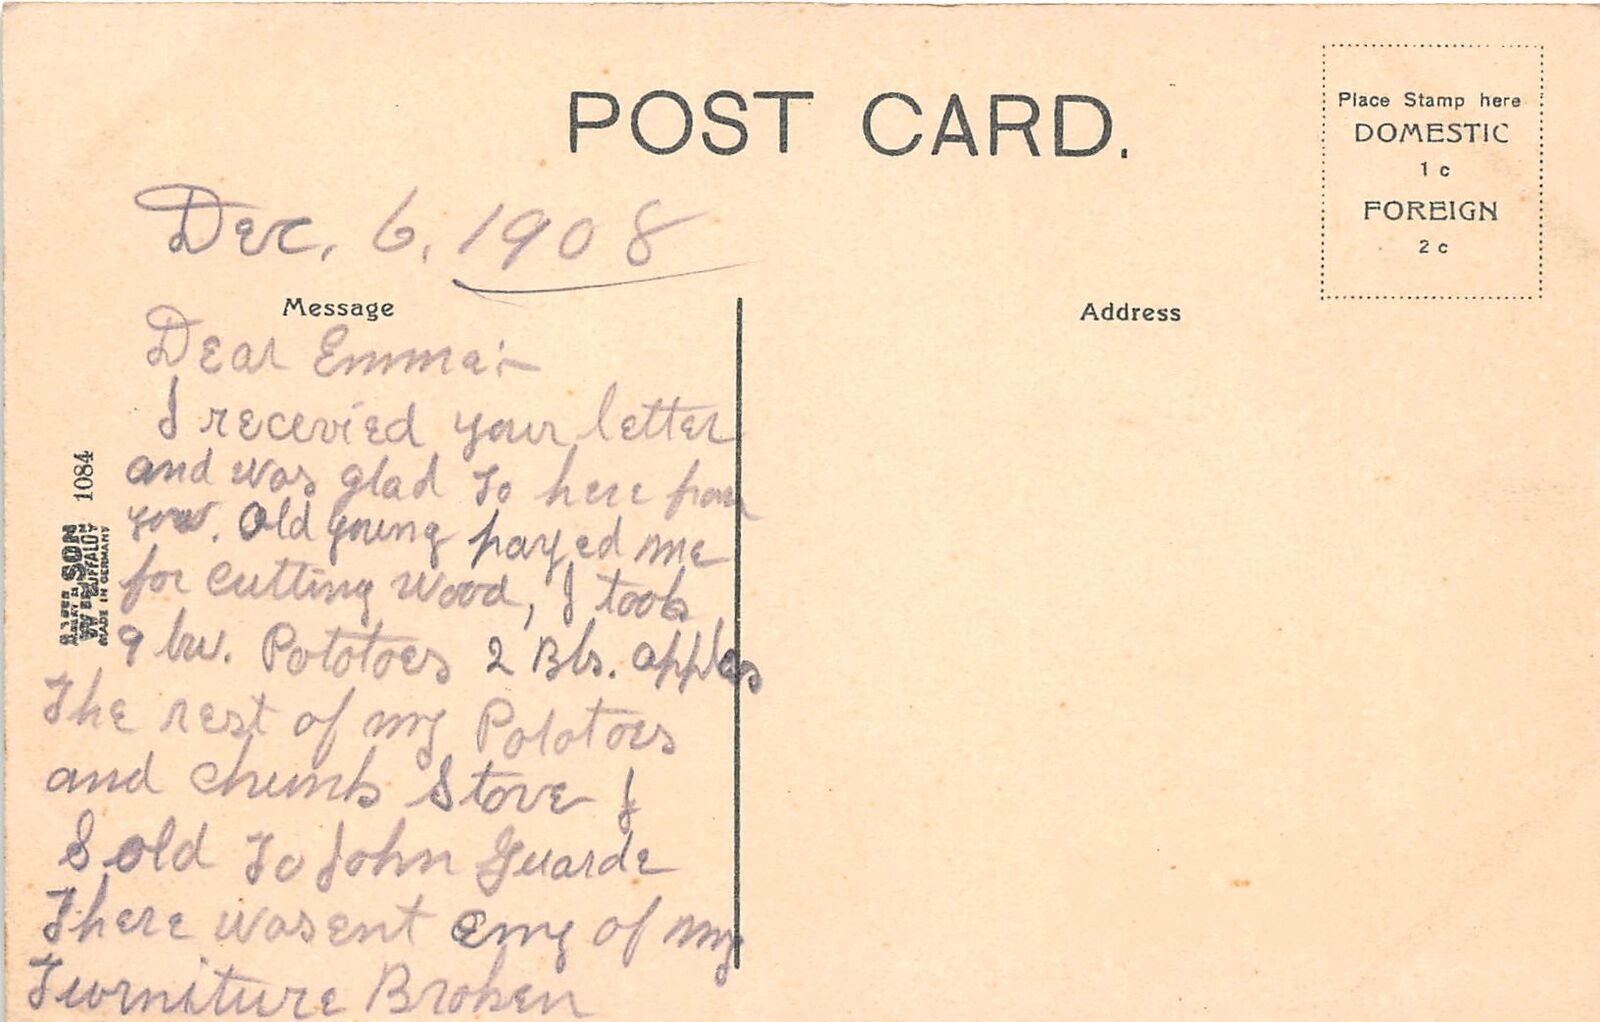 POST CARD.
Place Stamp here
DOMESTIC
1 c
FOREIGN
2 c
Dec. 6, 1908
Message
Address
Dear Emma:-
I recevied your letter
and was glad to here from
you. Old young payed me
for cutting wood, I took
9 bu. Pototoes 2 Bls. apples
The rest of my Pototoes
and chunk Stove I
Sold To John Guarde
There wasent eny of my
Furniture Broken
1084
WILSON
BUFFALO
MADE IN GERMANY